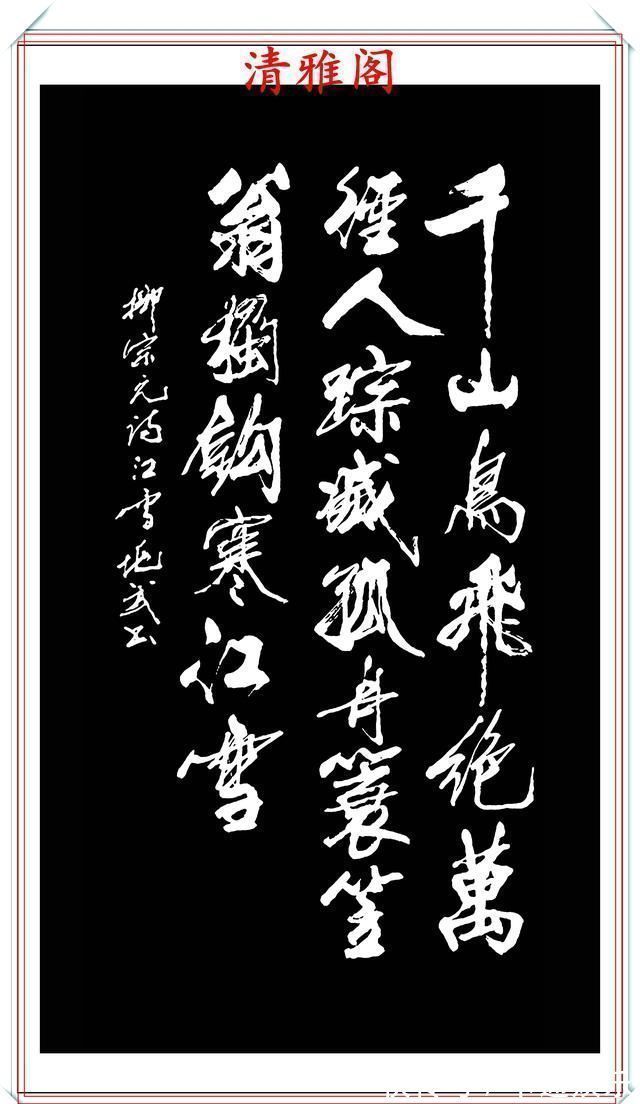 清雅阁
千山鳥飛绝萬
徑人踪滅孤舟簑笠
翁獨釣寒江雪
柳宗元诗江雪 武书